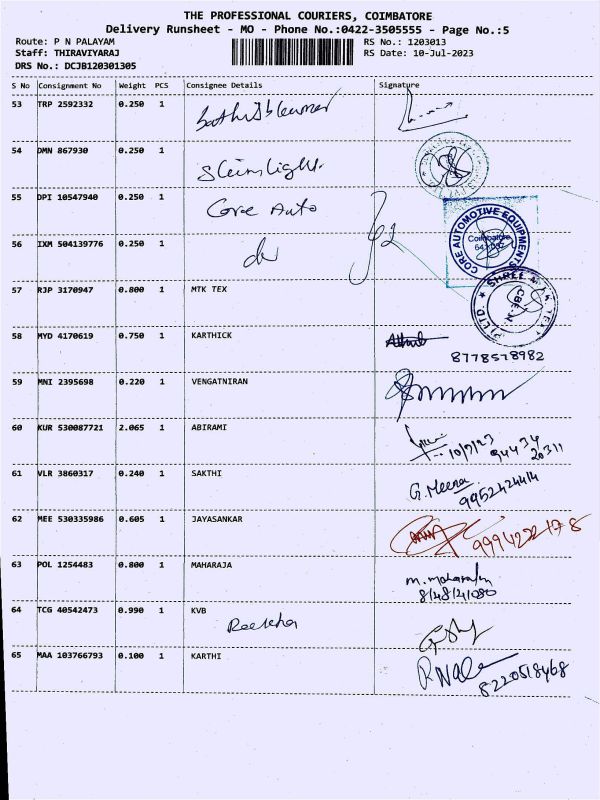 THE PROFESSIONAL COURIERS, COIMBATORE
Delivery Runsheet - MO - Phone No.:0422-3505555 - Page No.:5
Route: P N PALAYAM RS No.: 1203013
Staff: THIRAVIYARAJ RS Date: 10-Jul-2023
DRS No.: DCJB120301305
S No Consignment No Weight PCS Consignee Details Signature
53 TRP 2592332 0.250 1
54 DMN 867930 0.250 1
55 DPI 10547940 0.250 1 Core Auto
CORE AUTOMOTIVE EQUIPMENTS
Coimbatore
56 IXM 504139776 0.250 1
57 RJP 3170947 0.800 1 MTK TEX
58 MYD 4170619 0.750 1 KARTHICK
8778578982
59 MNI 2395698 0.220 1 VENGATNIRAN
60 KUR 530087721 2.065 1 ABIRAMI
10/7/23 94434
20311
61 VLR 3860317 0.240 1 SAKTHI G. Meena
9952424414
62 MEE 530335986 0.605 1 JAYASANKAR
9994222178
63 POL 1254483 0.800 1 MAHARAJA
8148121080
64 TCG 40542473 0.990 1 KVB
65 MAA 103766793 0.100 1 KARTHI
8220518468